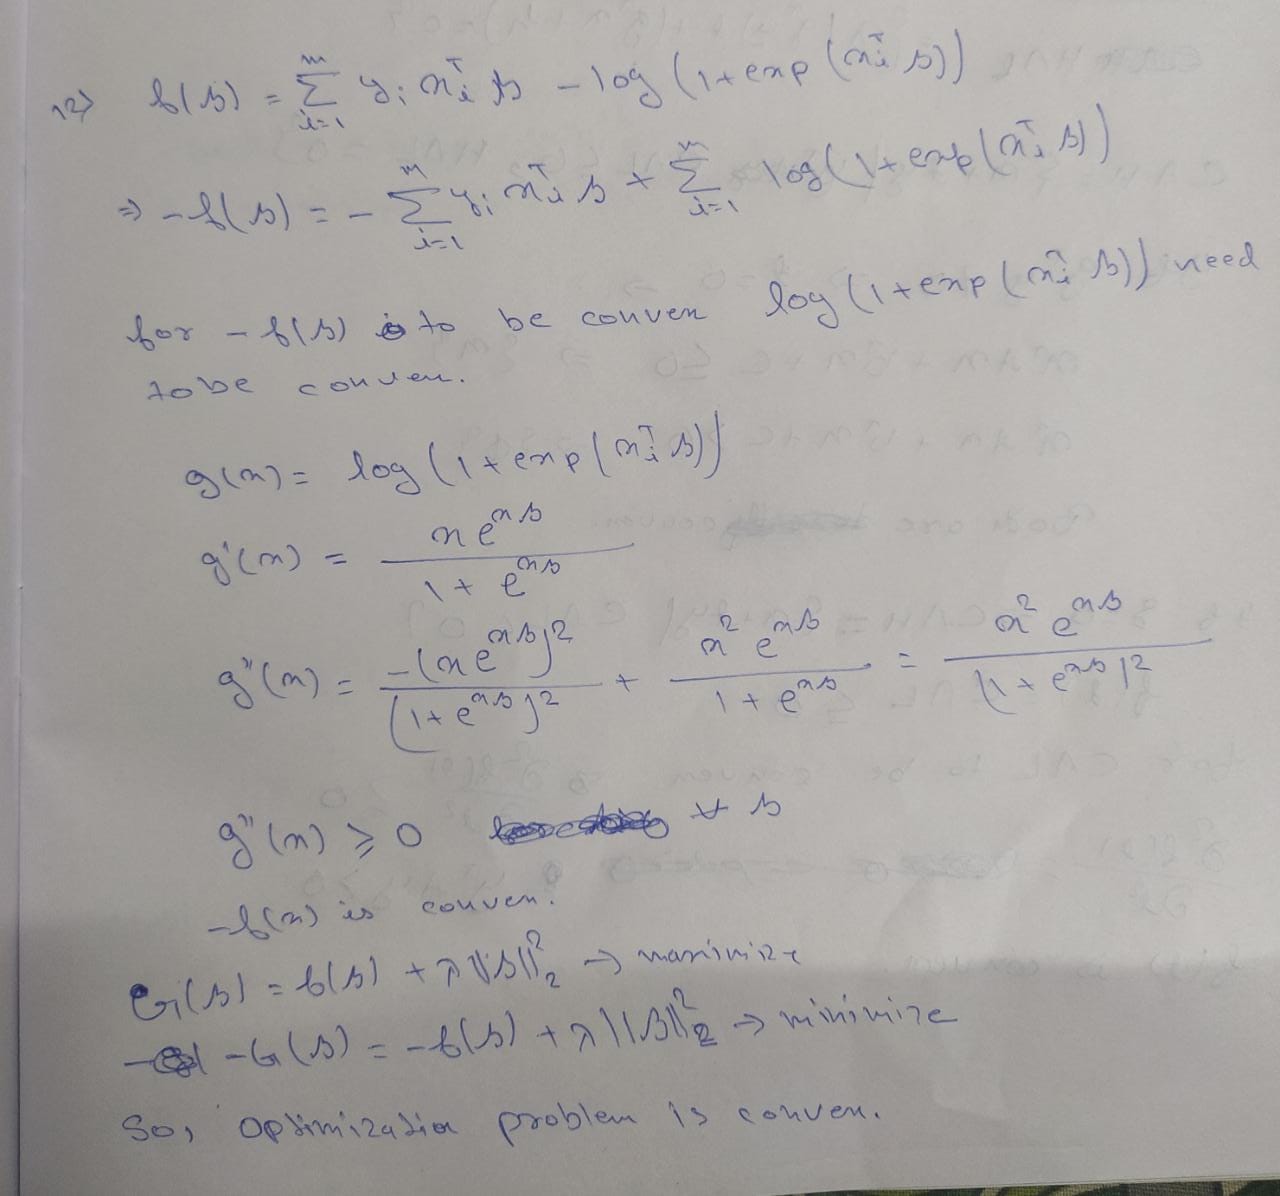 12) f(β) = Σ_{i=1}^{m} y_i x_i^T β - log(1+exp(x_i^T β))
⇒ -f(β) = - Σ_{i=1}^{m} y_i x_i^T β + Σ_{i=1}^{m} log(1+exp(x_i^T β))
for -f(β) to be convex log(1+exp(x_i^T β)) need
to be convex.
g(x) = log(1+exp(x_i^T β))
g'(x) = x e^{xβ} / (1+e^{xβ})
g''(x) = -(x e^{xβ})^2 / (1+e^{xβ})^2 + x^2 e^{xβ} / (1+e^{xβ}) = x^2 e^{xβ} / (1+e^{xβ})^2
g''(x) ≥ 0 ∀ β
-f(x) is convex.
G(β) = f(β) + λ||β||_2^2 → maximize
-G(β) = -f(β) + λ||β||_2^2 → minimize
So, optimization problem is convex.